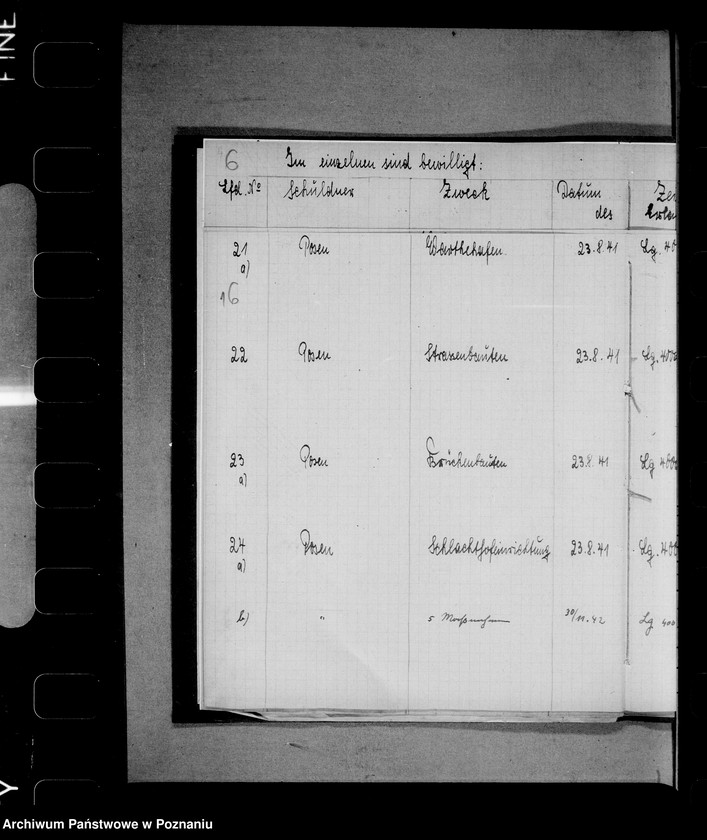 FINE
6 Im einzelnen sind bewilligt:
Lfd. No Schuldner Zweck Datum
des
21 Posen Warthehafen 23.8.41 Lg. 40
a)
16
22 Posen Strassenbauten 23.8.41 Lg. 400
23 Posen Brückenbauten 23.8.41 Lg 400
a)
24 Posen Schlachthofeinrichtung 23.8.41 Lg. 400
a)
b) " 5 Massnahmen 30/11.42 Lg 400
Y
Archiwum Państwowe w Poznaniu